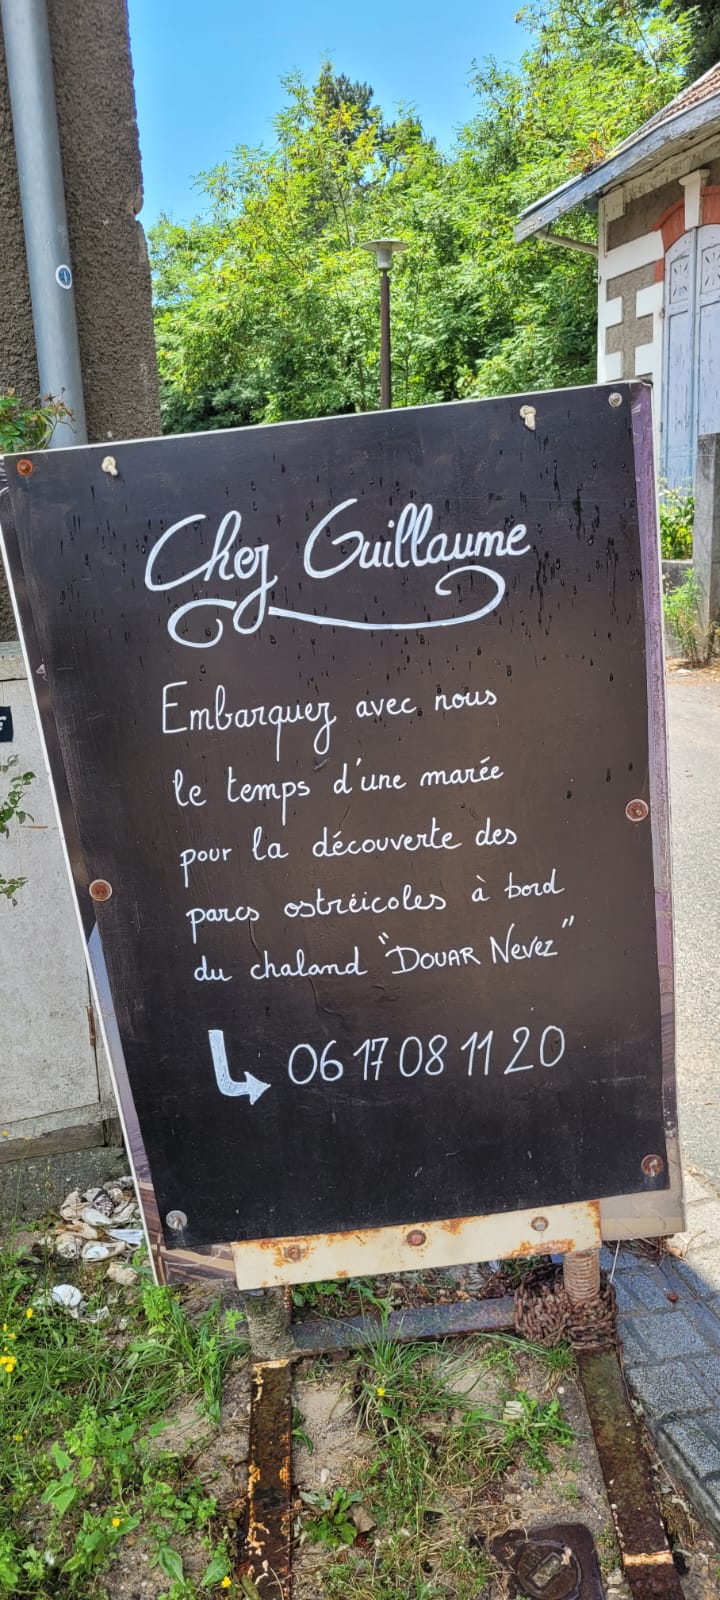 Chez Guillaume
Embarquez avec nous
le temps d'une marée
pour la découverte des
parcs ostréicoles à bord
du chaland "Douar Nevez"
06 17 08 11 20